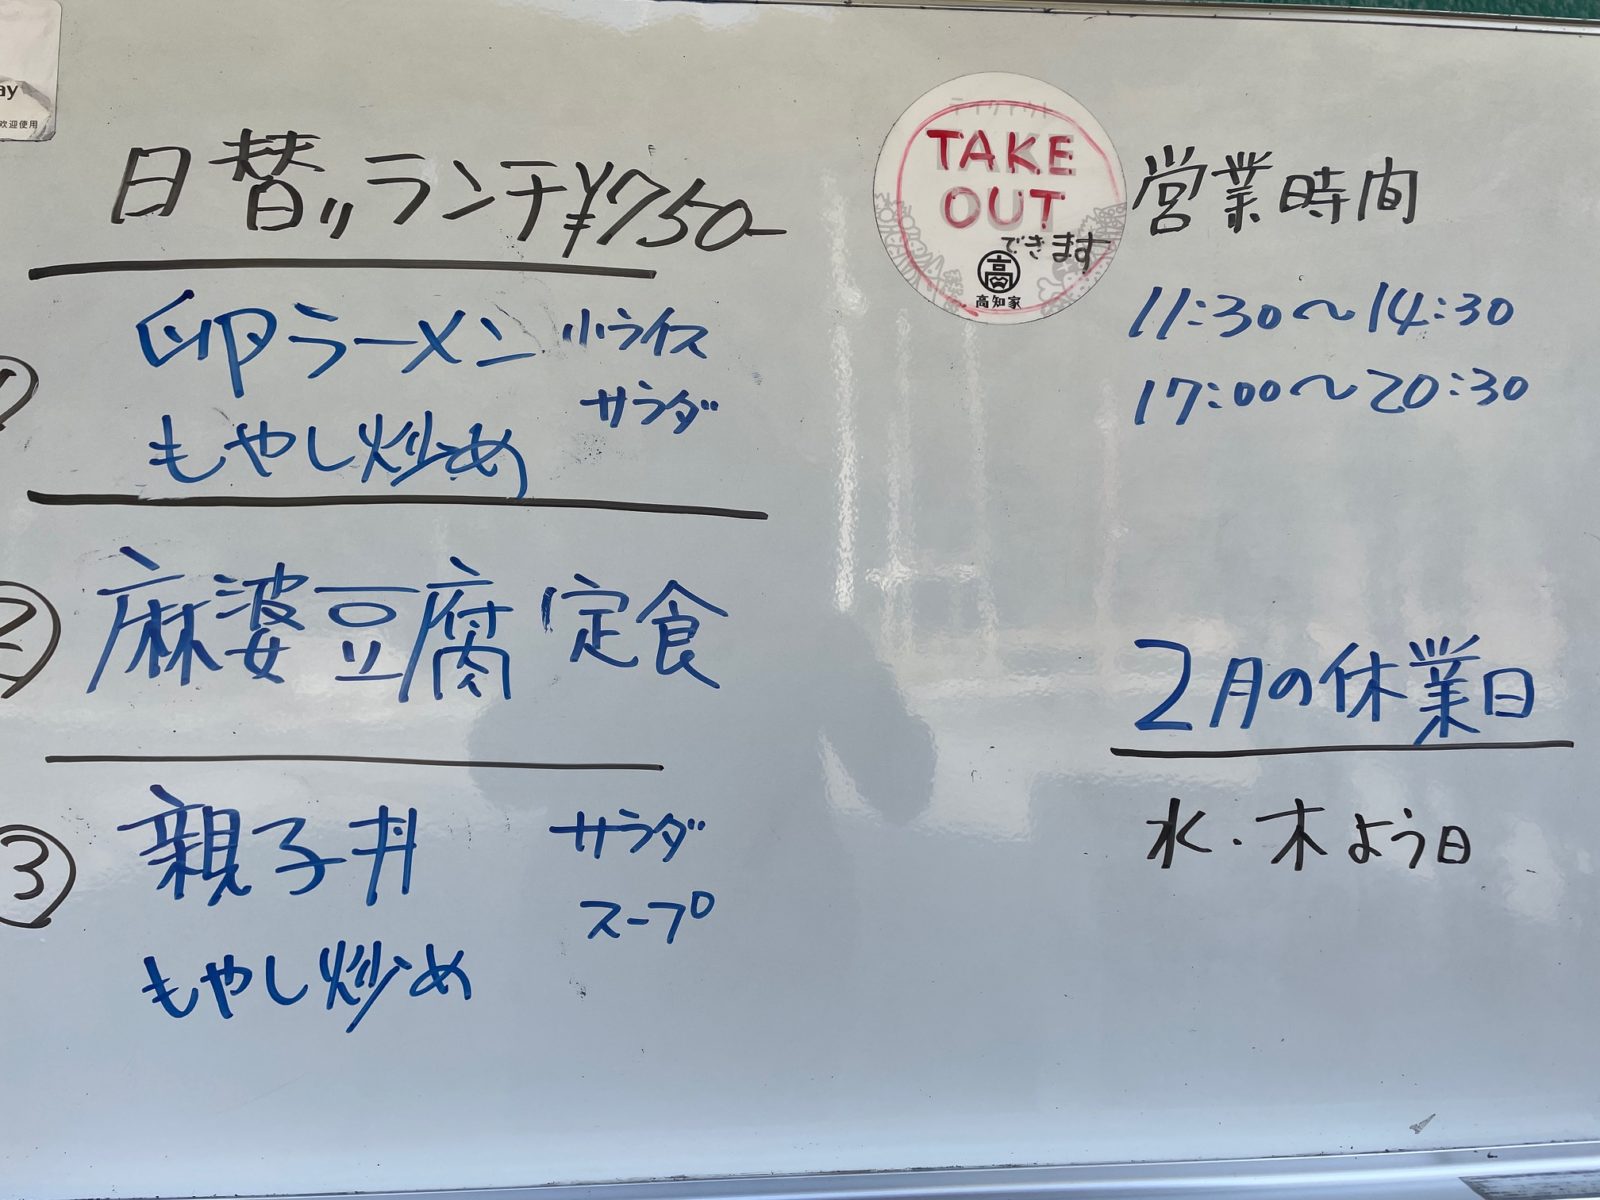 ay
欢迎使用
日替りランチ¥750-
①
卵ラーメン 小ライス
サラダ
もやし炒め
②
麻婆豆腐定食
③
親子丼 サラダ
スープ
もやし炒め
テイクアウト
TAKE
OUT
できます
高
高知家
営業時間
11:30〜14:30
17:00〜20:30
2月の休業日
水・木よう日